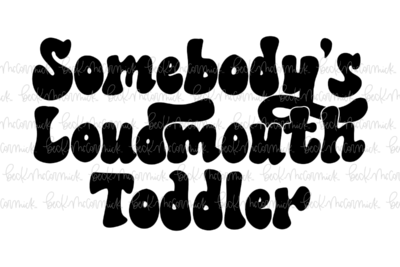 Somebody's
Loudmouth
Toddler